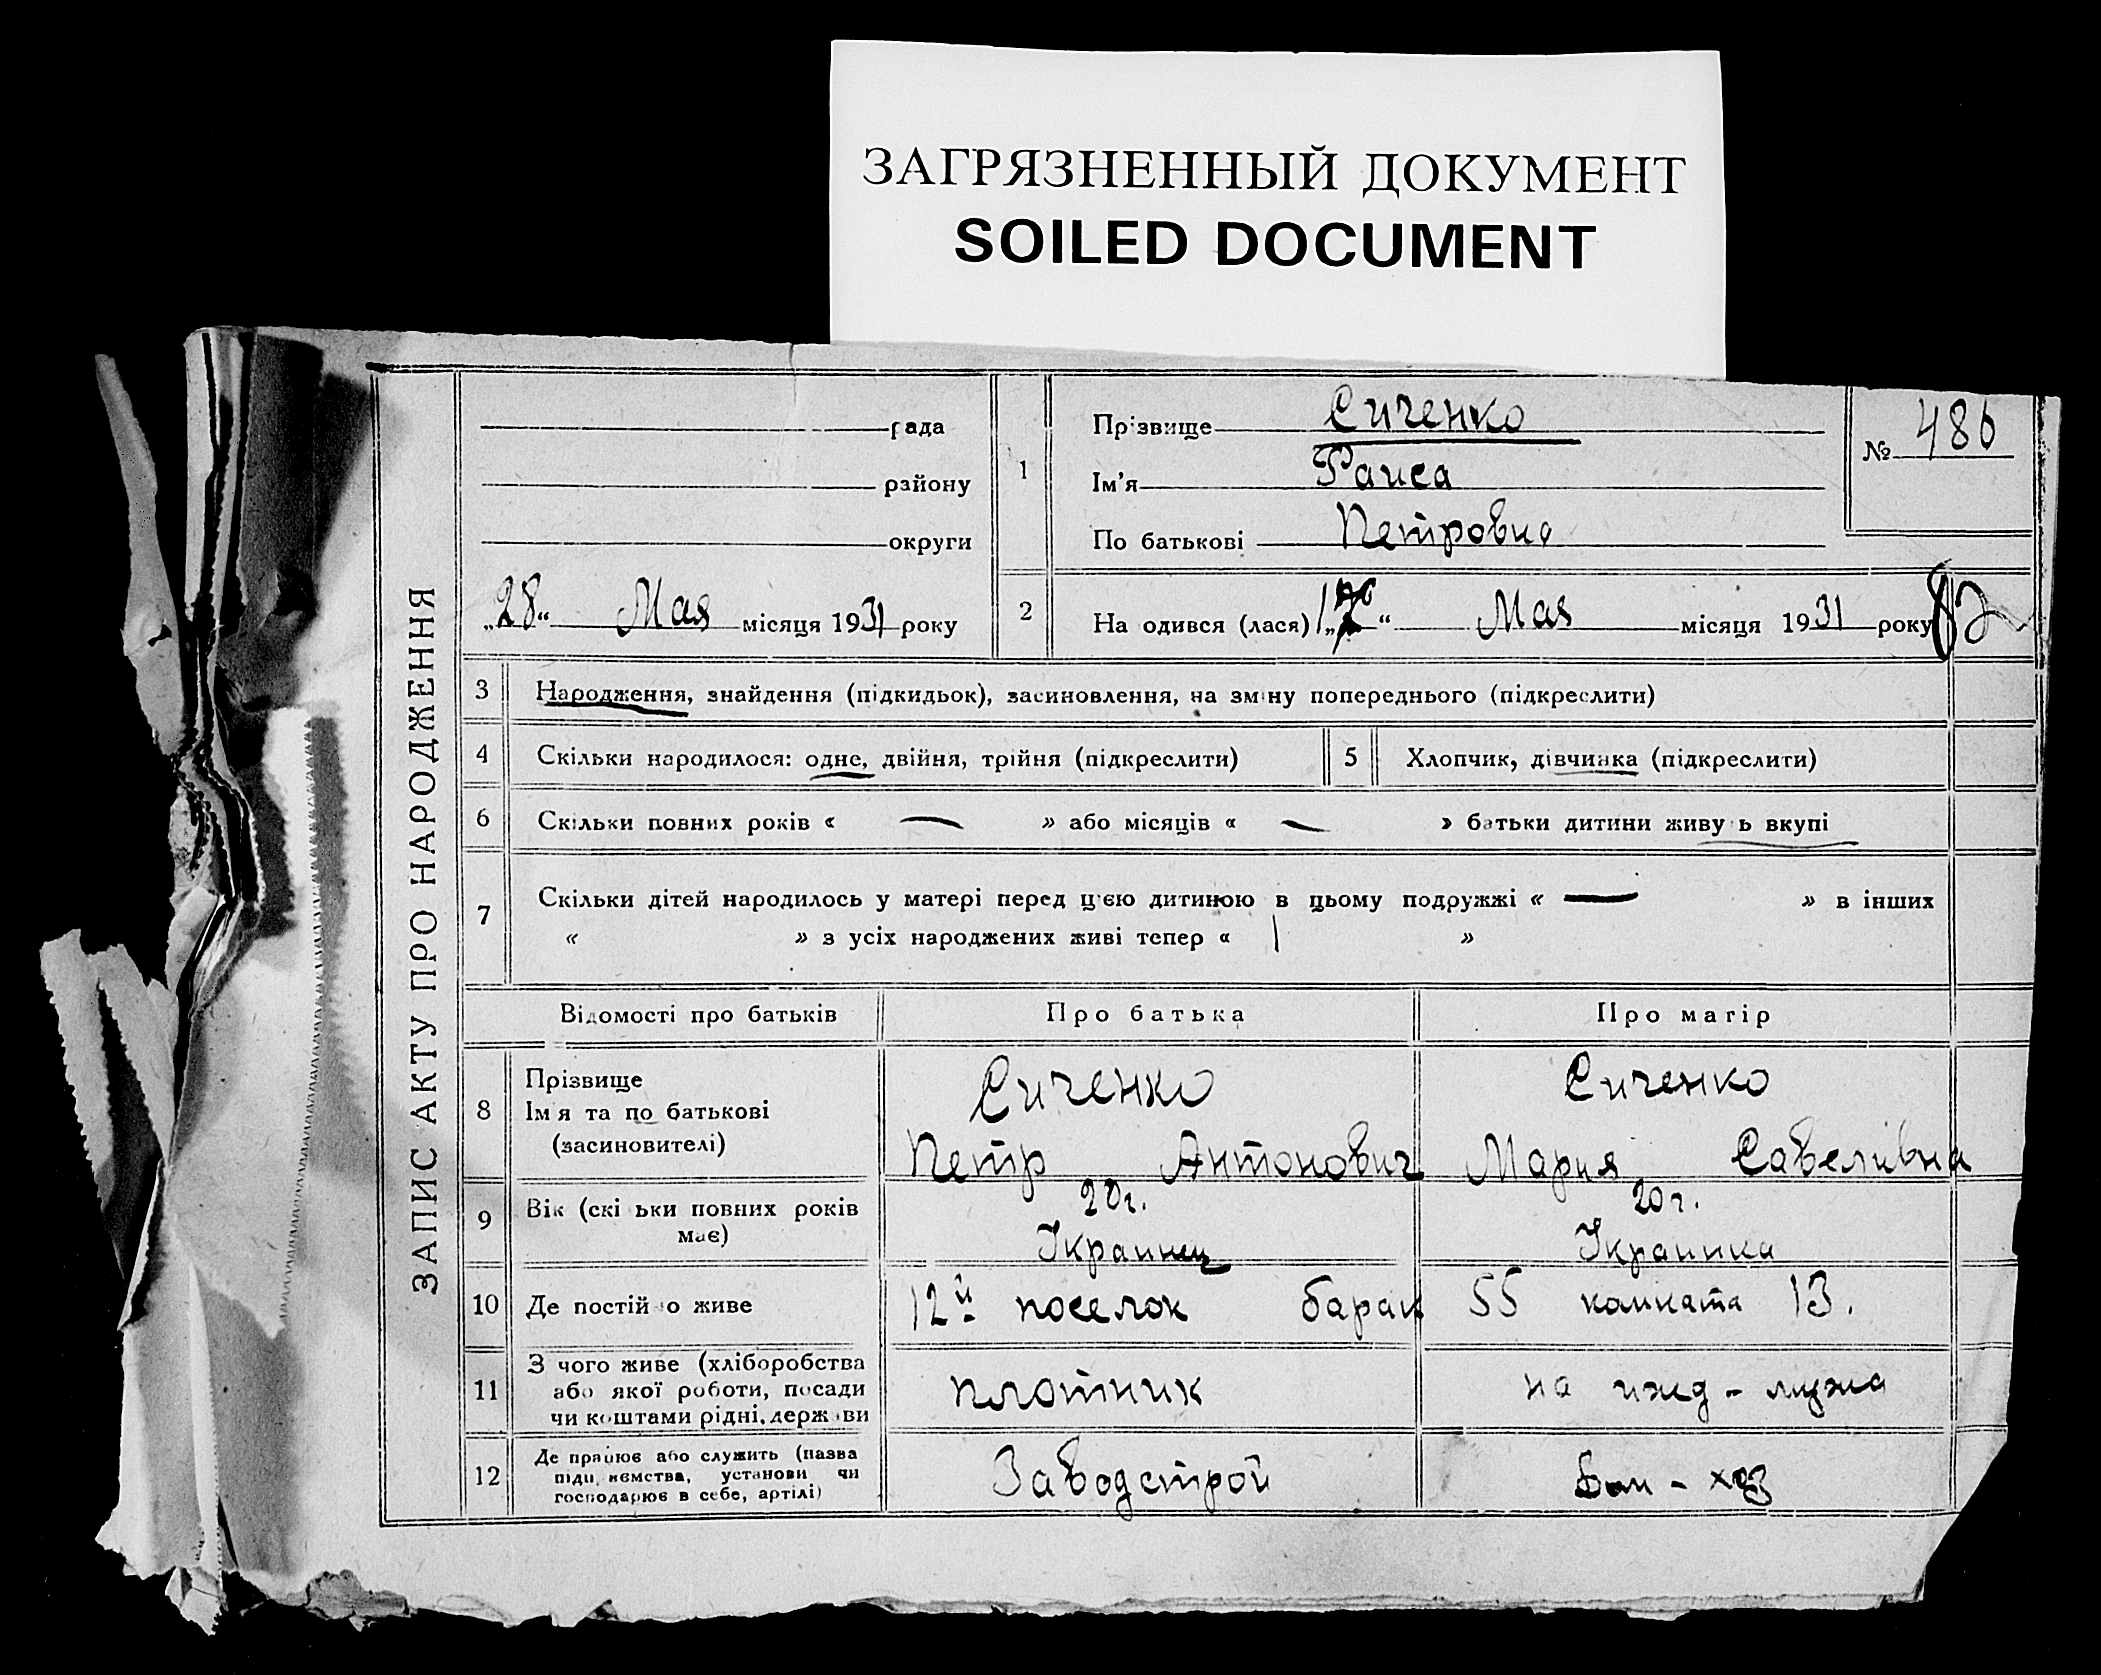 ЗАГРЯЗНЕННЫЙ ДОКУМЕНТ
SOILED DOCUMENT
ЗАПИС АКТУ ПРО НАРОДЖЕННЯ
рада
району
округи
„28“ Мая місяця 1931 року
1
Прізвище Сиченко
Ім'я Раиса
По батькові Петровна
№ 486
2 На одився (лася) „ “ Мая місяця 1931 року 82
3 Народження, знайдення (підкидьок), засиновлення, на зміну попереднього (підкреслити)
4 Скільки народилося: одне, двійня, трійня (підкреслити)
5 Хлопчик, дівчинка (підкреслити)
6 Скільки повних років « — » або місяців « — » батьки дитини живу ь вкупі
7 Скільки дітей народилось у матері перед цією дитиною в цьому подружжі « — » в інших
« » з усіх народжених живі тепер « 1 »
Відомості про батьків Про батька Про матір
8 Прізвище
Ім я та по батькові
(засиновителі)
Сиченко
Петр Антонович
Сиченко
Мария Савеливна
9 Вік (скі ьки повних років
має)
20 г.
Украинец
20 г.
Украинка
10 Де постій о живе 12й поселок барак 55 комната 13.
11 З чого живе (хліборобства
або якої роботи, посади
чи коштами рідні, держ ви
плотник
на ижд - мужа
12 Де працює або служить (назва
підп ємства, установи чи
господарює в себе, артілі)
Заводстрой
Дом - хоз